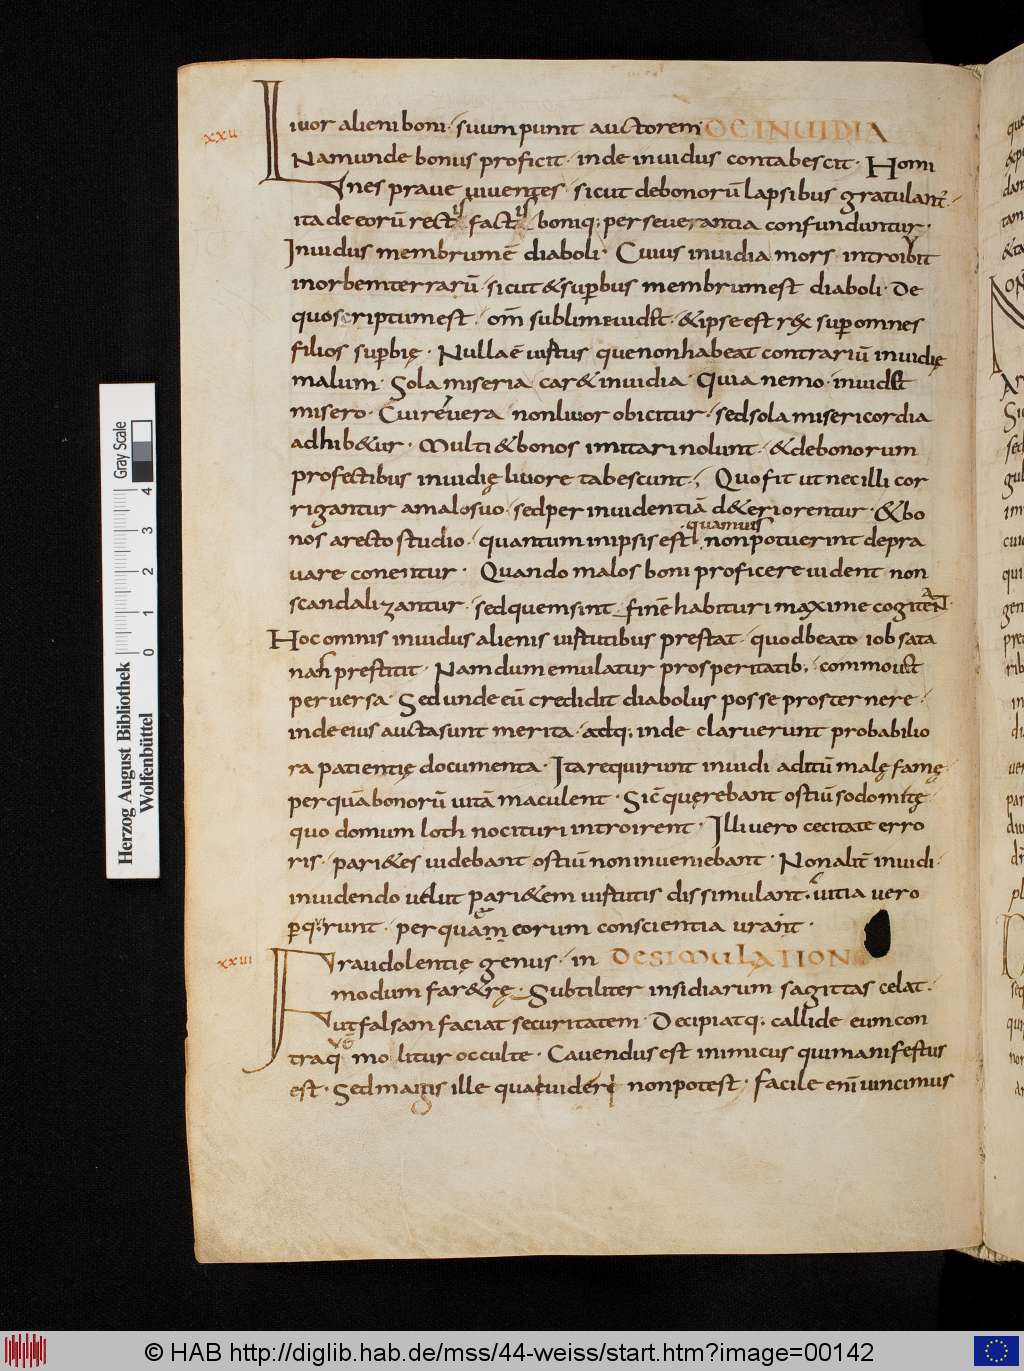 xxii
Livor alieni boni · suum punit auctorem DE INVIDIA
Nam unde bonus proficit · inde invidus contabescit · Homi
nes prave viventes · sicut de bonorū lapsibus gratulant
ita de eorū rectis factis boniq; perseverantia confunduntur ·
Invidus membrum ē diaboli · Cuius invidia mors introivit
in orbem terrarū · sicut & supbus membrum est diaboli · De
quo scriptum est · om̄ sublime videt · & ipse est rex sup omnes
filios supbię · Nulla ē virtus que non habeat contrariū invidię
malum · Sola miseria car& invidia · Quia nemo invidet
misero · Cui revera non livor obicitur · sed sola misericordia
adhib&ur · Multi & bonos imitari nolunt · & de bonorum
profectibus invidię livore tabescunt ·; Quo fit ut nec illi cor
rigantur a malo suo · sed per invidentiā d&eriorentur · & bo
nos a recto studio · quantum in ipsis est
quamvis
non potuerint depra
vare conentur · Quando malos boni proficere vident non
scandalizantur · sed quem sint finē habituri maxime cogitant ·
Hoc omnis invidus alienis virtutibus prestat · quod beato iob sata
nah prestitit · Nam dum emulatur prosperitatib; · commovit
perversa · Sed unde eū credidit diabolus posse prosternere ·
inde eius aucta sunt merita · adq; inde claruerunt probabilio
ra patientię documenta · Ita requirunt invidi aditū malę famę
per quā bonorū vitā maculent · Sic quęrebant ostiū sodomitę
quo domum loth nocituri introirent · Illi vero cecitate erro
ris · pari&es videbant ostiū non inveniebant · Non alit invidi ·
invidendo velut pari&em virtutis dissimulant · vitia vero
pqrunt · per quam eorum conscientia urant ·
xxiii
Fraudolentię genus · in DE SIMULATIONE
modum far&rę · Subtiliter insidiarum sagittas celat ·
ut falsam faciat securitatem · Decipiatq; callide eum con
tra quē molitur occulte · Cavendus est inimicus qui manifestus
est · Sed magis ille qua videri non potest · facile eni vincimus
Herzog August Bibliothek
Wolfenbüttel
0 1 2 3 4
Gray Scale
© HAB http://diglib.hab.de/mss/44-weiss/start.htm?image=00142